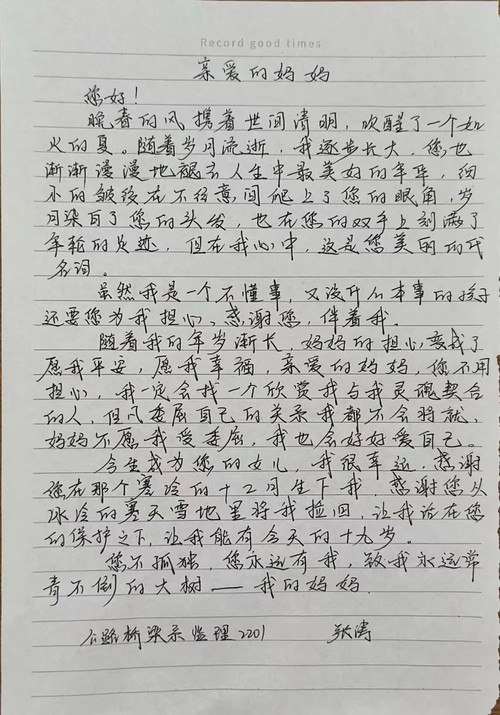 Record good times
亲爱的妈妈
您好！
晚春的风携着世间清明，吹醒了一个如
火的夏。随着岁月流逝，我逐步长大，您也
渐渐漫漫地褪去人生中最美好的年华，细
小的皱纹在不经意间爬上了您的眼角，岁
月染白了您的头发，也在您的双手上刻满了
年轮的足迹，但在我心中，这是您美丽的代
名词。
虽然我是一个不懂事，又没什么本事的孩子
还要您为我担心、感谢您，伴着我。
随着我的年岁渐长，妈妈的担心变成了
愿我平安，愿我幸福，亲爱的妈妈，您不用
担心，我一定会找一个欣赏我与我灵魂契合
的人，但凡委屈自己的关系我都不会将就，
妈妈不愿我受委屈，我也会好好爱自己。
今生成为您的女儿，我很幸运，感谢
您在那个寒冷的十二月生下我，感谢您从
冰冷的寒天雪地里将我捡回，让我活在您
的保护之下，让我能有今天的十九岁。
您不孤独，您永远有我，致我永远常
青不倒的大树——我的妈妈．
公路桥梁系监理2201 张涛